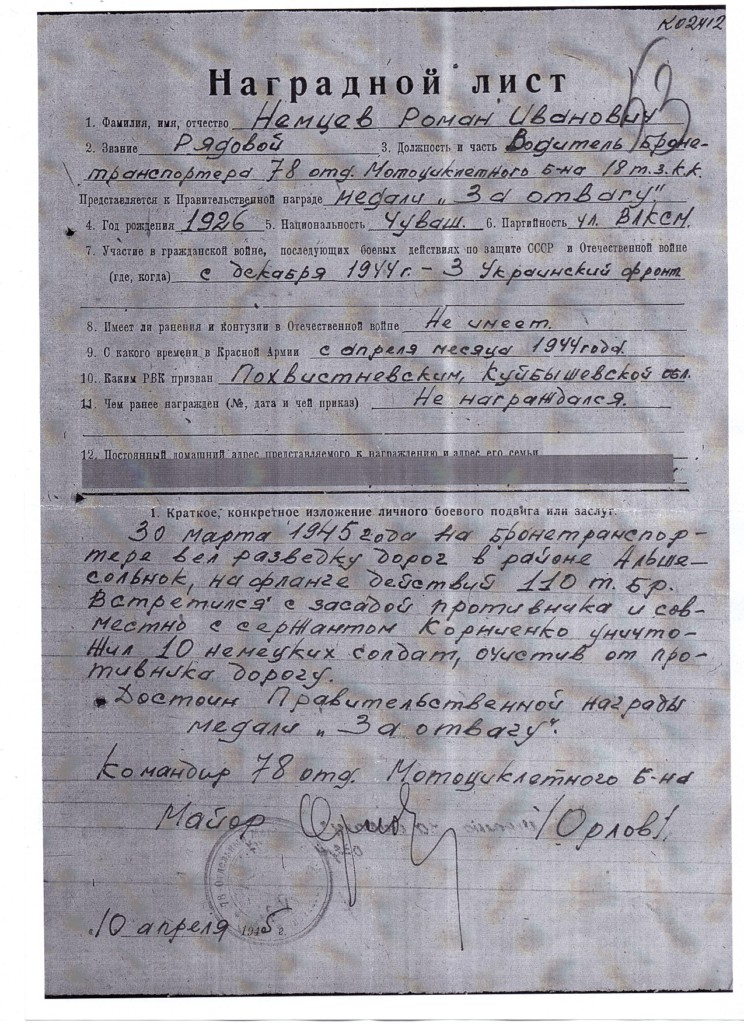 К02412
53
Наградной лист
1. Фамилия, имя, отчество Немцев Роман Иванович
2. Звание Рядовой 3. Должность и часть Водитель Броне-
транспортера 78 отд. Мотоциклетного б-на 18 т.з.к.к.
Представляется к Правительственной награде медали „За отвагу".
4. Год рождения 1926 5. Национальность Чуваш. 6. Партийность чл. ВЛКСМ.
7. Участие в гражданской войне, последующих боевых действиях по защите СССР и Отечественной войне
(где, когда) с декабря 1944г. – 3 Украинский фронт
8. Имеет ли ранения и контузии в Отечественной войне Не имеет.
9. С какого времени в Красной Армии с апреля месяца 1944 года.
10. Каким РВК призван Похвистневским, Куйбышевской обл.
11. Чем ранее награжден (№, дата и чей приказ) Не награждался.
12. Постоянный домашний адрес представляемого к награждению и адрес его семьи
1. Краткое, конкретное изложение личного боевого подвига или заслуг.
30 марта 1945 года на бронетранспор-
тере вел разведку дорог в районе Альше-
сольнок, на фланге действий 110 т. бр.
Встретился с засадой противника и сов-
местно с сержантом Корниенко уничто-
жил 10 немецких солдат, очистив от про-
тивника дорогу.
Достоин Правительственной награды
медали „За отвагу".
Командир 78 отд. Мотоциклетного б-на
Майор /Орлов/.
„10 апреля 1945 г.